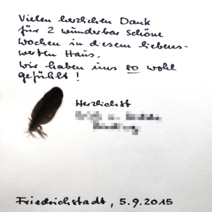 Vielen herzlichen Dank
für 2 wunderbar schöne
Wochen in diesem liebens-
werten Haus.
Wir haben uns so wohl
gefühlt!
Herzlichst
Friedrichstadt, 5.9.2015